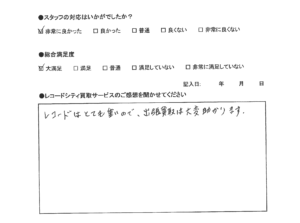 ●スタッフの対応はいかがでしたか?
☑ 非常に良かった □ 良かった □ 普通 □ 良くない □ 非常に良くない
●総合満足度
☑ 大満足 □ 満足 □ 普通 □ 満足していない □ 非常に満足していない
記入日: 年 月 日
●レコードシティ買取サービスのご感想を聞かせてください
レコードはとても重いので、出張買取は大変助かります。